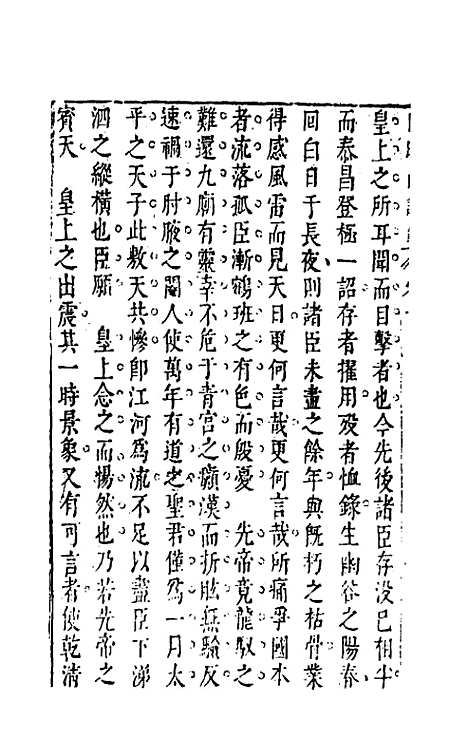 皇上之所耳聞而目擊者也今先後諸臣存没已相半
而泰昌登極一詔存者擢用殁者恤錄生幽谷之陽春
回白日于長夜則諸臣未盡之餘年與既朽之枯骨業
得感風雷而見天日更何言哉更何言哉所痛爭國本
者流落孤臣漸鵷班之有色而殷憂　先帝竟龍馭之
難還九廟有靈幸不危于青宮之獗漢而折肱無驗反
速禍于肘腋之閹人使萬年有道之聖君僅爲一月太
平之天子此敷天共慘卽江河爲流不足以盡臣下涕
泗之縱橫也臣願　皇上念之而惕然也乃若先帝之
賓天　皇上之出震其一時景象又有可言者使乾清